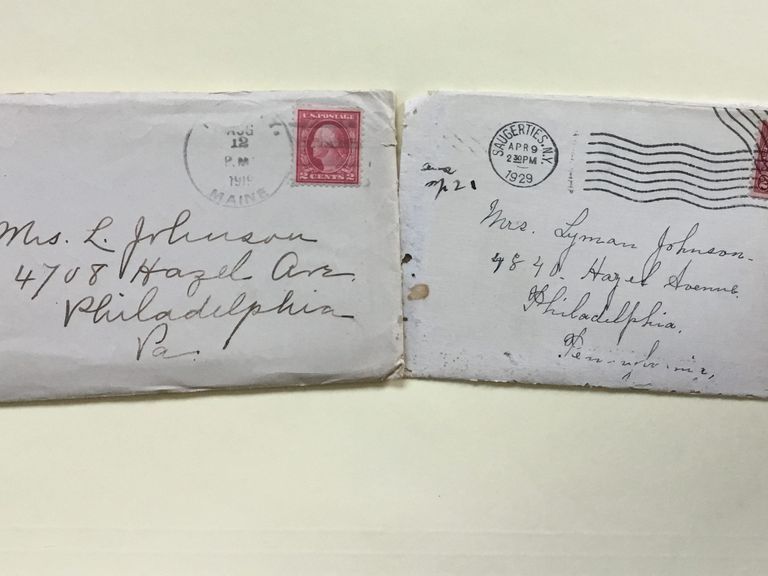 AUG
12
P.M
1919
MAINE
U.S. POSTAGE
2 CENTS 2
Mrs. L. Johnson
4708 Hazel Ave.
Philadelphia
Pa.
SAUGERTIES, N.Y.
APR 9
2 30 PM
1929
ans
Mrs. Lyman Johnson.
4840. Hazel Avenue.
Philadelphia,